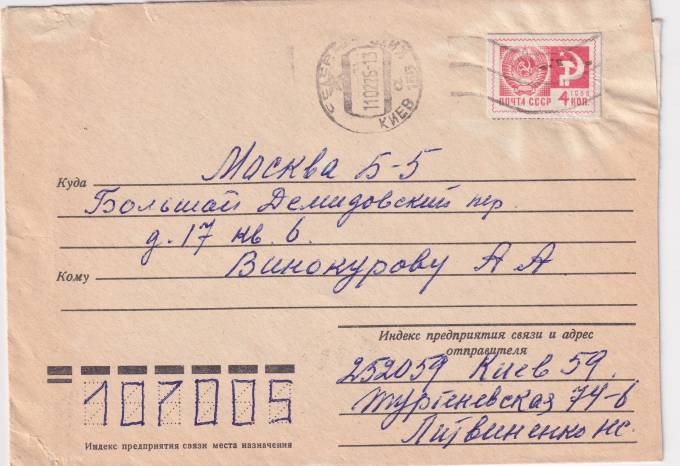 11 02 76-13
КИЕВ
1966
ПОЧТА СССР 4 КОП.
Москва Б-5
Куда
Большой Демидовский пер.
д. 17 кв. 6.
Кому Винокурову А А
Индекс предприятия связи и адрес
отправителя
252059 Киев 59.
Тургеневская 74-б
Литвиненко
107005
Индекс предприятия связи места назначения